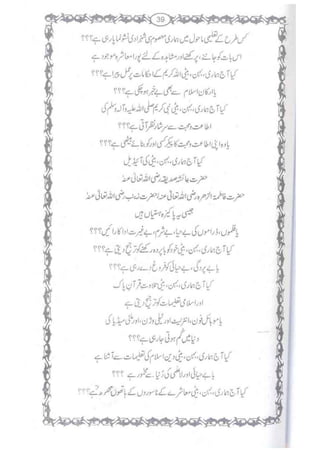 39
کس طرح کے تعلیمی ماحول میں ہماری معصوم سی شہزادی نشوونما پا رہی ہے؟؟؟
اس بات کو جاننے، پرکھنے اور مشاہدہ کے لئے پورا معاشرہ موجود ہے
کیا آج ہماری، بہن، بیٹی اللہ کریم کے احکامات پر عمل پیرا ہے؟؟؟
یا ارکانِ اسلام سے بھی بے خبر ہو چکی ہے؟؟؟
کیا آج ہماری، بہن، بیٹی نبی کریم صلی اللہ علیہ وآلہ وسلم کی
اطاعت و محبت سے سرشار نظر آتی ہے؟؟؟
یا وہ اپنی اطاعت و محبت کا پیکر کسی اور کو بنائے بیٹھی ہے؟؟؟
کیا آج ہماری، بہن، بیٹی کی آئیڈیل
حضرت عائشہ صدیقہ رضی اللہ تعالیٰ عنہا
حضرت فاطمۃ الزھرہ رضی اللہ تعالیٰ عنہا حضرت زینب رضی اللہ تعالیٰ عنہا
جیسی یہ پاکیزہ ہستیاں ہیں
یا فلموں، ڈراموں کی بے حیا، بے شرم، بے غیرت اداکارائیں؟؟؟
کیا آج ہماری، بہن، بیٹی خود کو با پردہ رکھنے کو ترجیح دیتی ہے؟؟؟
یا بے پردگی، بے حیائی کو فروغ دے رہی ہے؟؟؟
کیا آج ہماری، بہن، بیٹی تلاوتِ قرآنِ پاک
اور اسلامی تعلیمات کو ترجیح دیتی ہے
یا موبائل فون، انٹرنیٹ اور ٹیلی وژن، اور ملٹی میڈیا کی
دنیا میں گم ہوتی جا رہی ہے؟؟؟
کیا آج ہماری، بہن، بیٹی دینِ اسلام کی تعلیمات سے آشنا ہے
یا بے حیائی اور لاعلمی کی دنیا سے مخمور ہے ؟؟؟
کیا آج ہماری، بہن، بیٹی معاشرے کے ناسوروں کے ہاتھوں محفوظ ہے؟؟؟